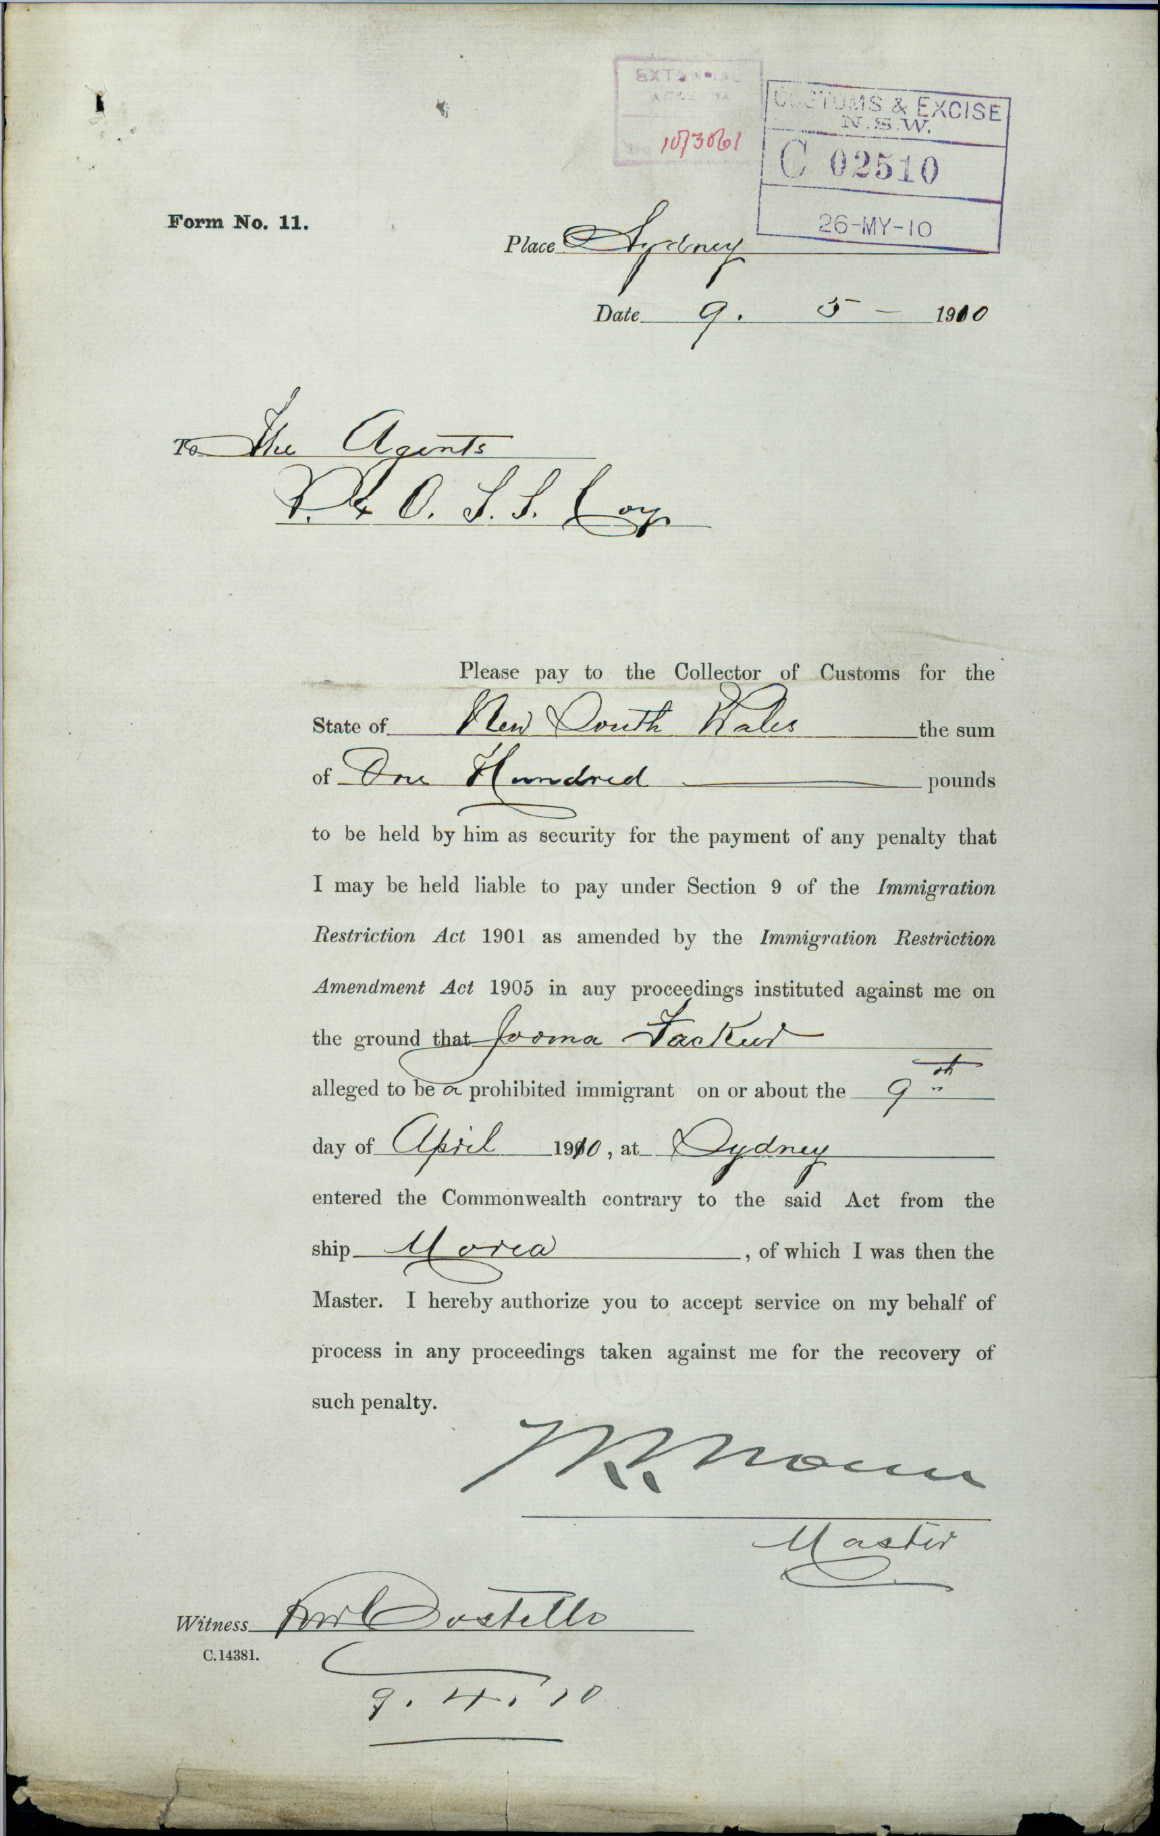 EXTERNAL
10/3061
CUSTOMS & EXCISE
N.S.W.
C 02510
26-MY-10
Form No. 11.
Place Sydney
Date 9. 5 - 1910
To The Agents
P. & O. S. S. Coy
Please pay to the Collector of Customs for the
State of New South Wales the sum
of One Hundred pounds
to be held by him as security for the payment of any penalty that
I may be held liable to pay under Section 9 of the Immigration
Restriction Act 1901 as amended by the Immigration Restriction
Amendment Act 1905 in any proceedings instituted against me on
the ground that Jooma Fackur
alleged to be a prohibited immigrant on or about the 9th
day of April 1910, at Sydney
entered the Commonwealth contrary to the said Act from the
ship Morea, of which I was then the
Master. I hereby authorize you to accept service on my behalf of
process in any proceedings taken against me for the recovery of
such penalty.
Master
Witness Costello
C.14381.
9. 4. 10